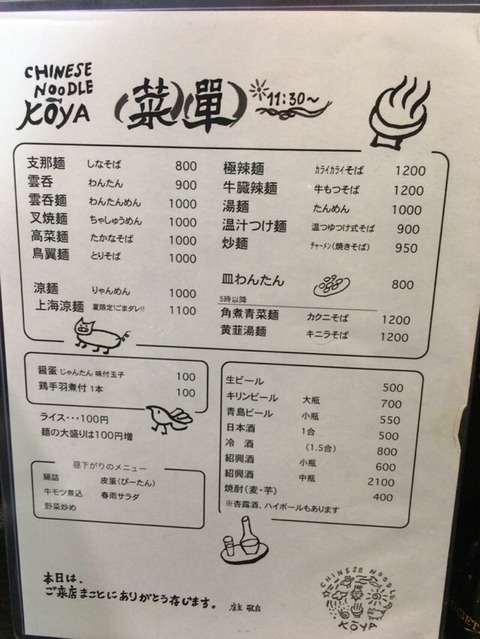 CHINESE
NOODLE
KŌYA
(菜)(單)
11:30〜
支那麺 しなそば 800
雲呑 わんたん 900
雲呑麺 わんたんめん 1000
叉焼麺 ちゃしゅうめん 1000
高菜麺 たかなそば 1000
鳥翼麺 とりそば 1000
涼麺 りゃんめん 1000
上海涼麺 夏限定!ごまダレ!! 1100
極辣麺 カライカライそば 1200
牛臓辣麺 牛もつそば 1200
湯麺 たんめん 1000
温汁つけ麺 温つゆつけ式そば 900
炒麺 チャーメン(焼きそば) 950
皿わんたん 800
5時以降
角煮青菜麺 カクニそば 1200
黄韮湯麺 キニラそば 1200
醤蛋 じゃんたん 味付玉子 100
鶏手羽煮付 1本 100
ライス・・・100円
麺の大盛りは100円増
昼下がりのメニュー
腸詰 皮蛋(ぴーたん)
牛モツ煮込 春雨サラダ
野菜炒め
生ビール 500
キリンビール 大瓶 700
青島ビール 小瓶 550
日本酒 1合 500
冷 酒 (1.5合) 800
紹興酒 小瓶 600
紹興酒 中瓶 2100
焼酎(麦・芋) 400
※杏露酒、ハイボールもあります
本日は、
ご来店まことにありがとう存じます。
CHINESE NOODLE
KŌYA